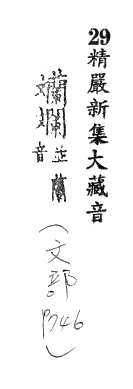 29精嚴新集大藏音
斕並音蘭
(文部P746)